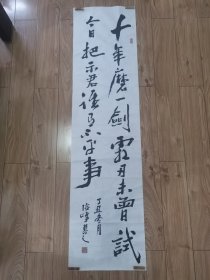 十年磨一劍霜刃未曾試
今日把示君誰有不平事
冬月